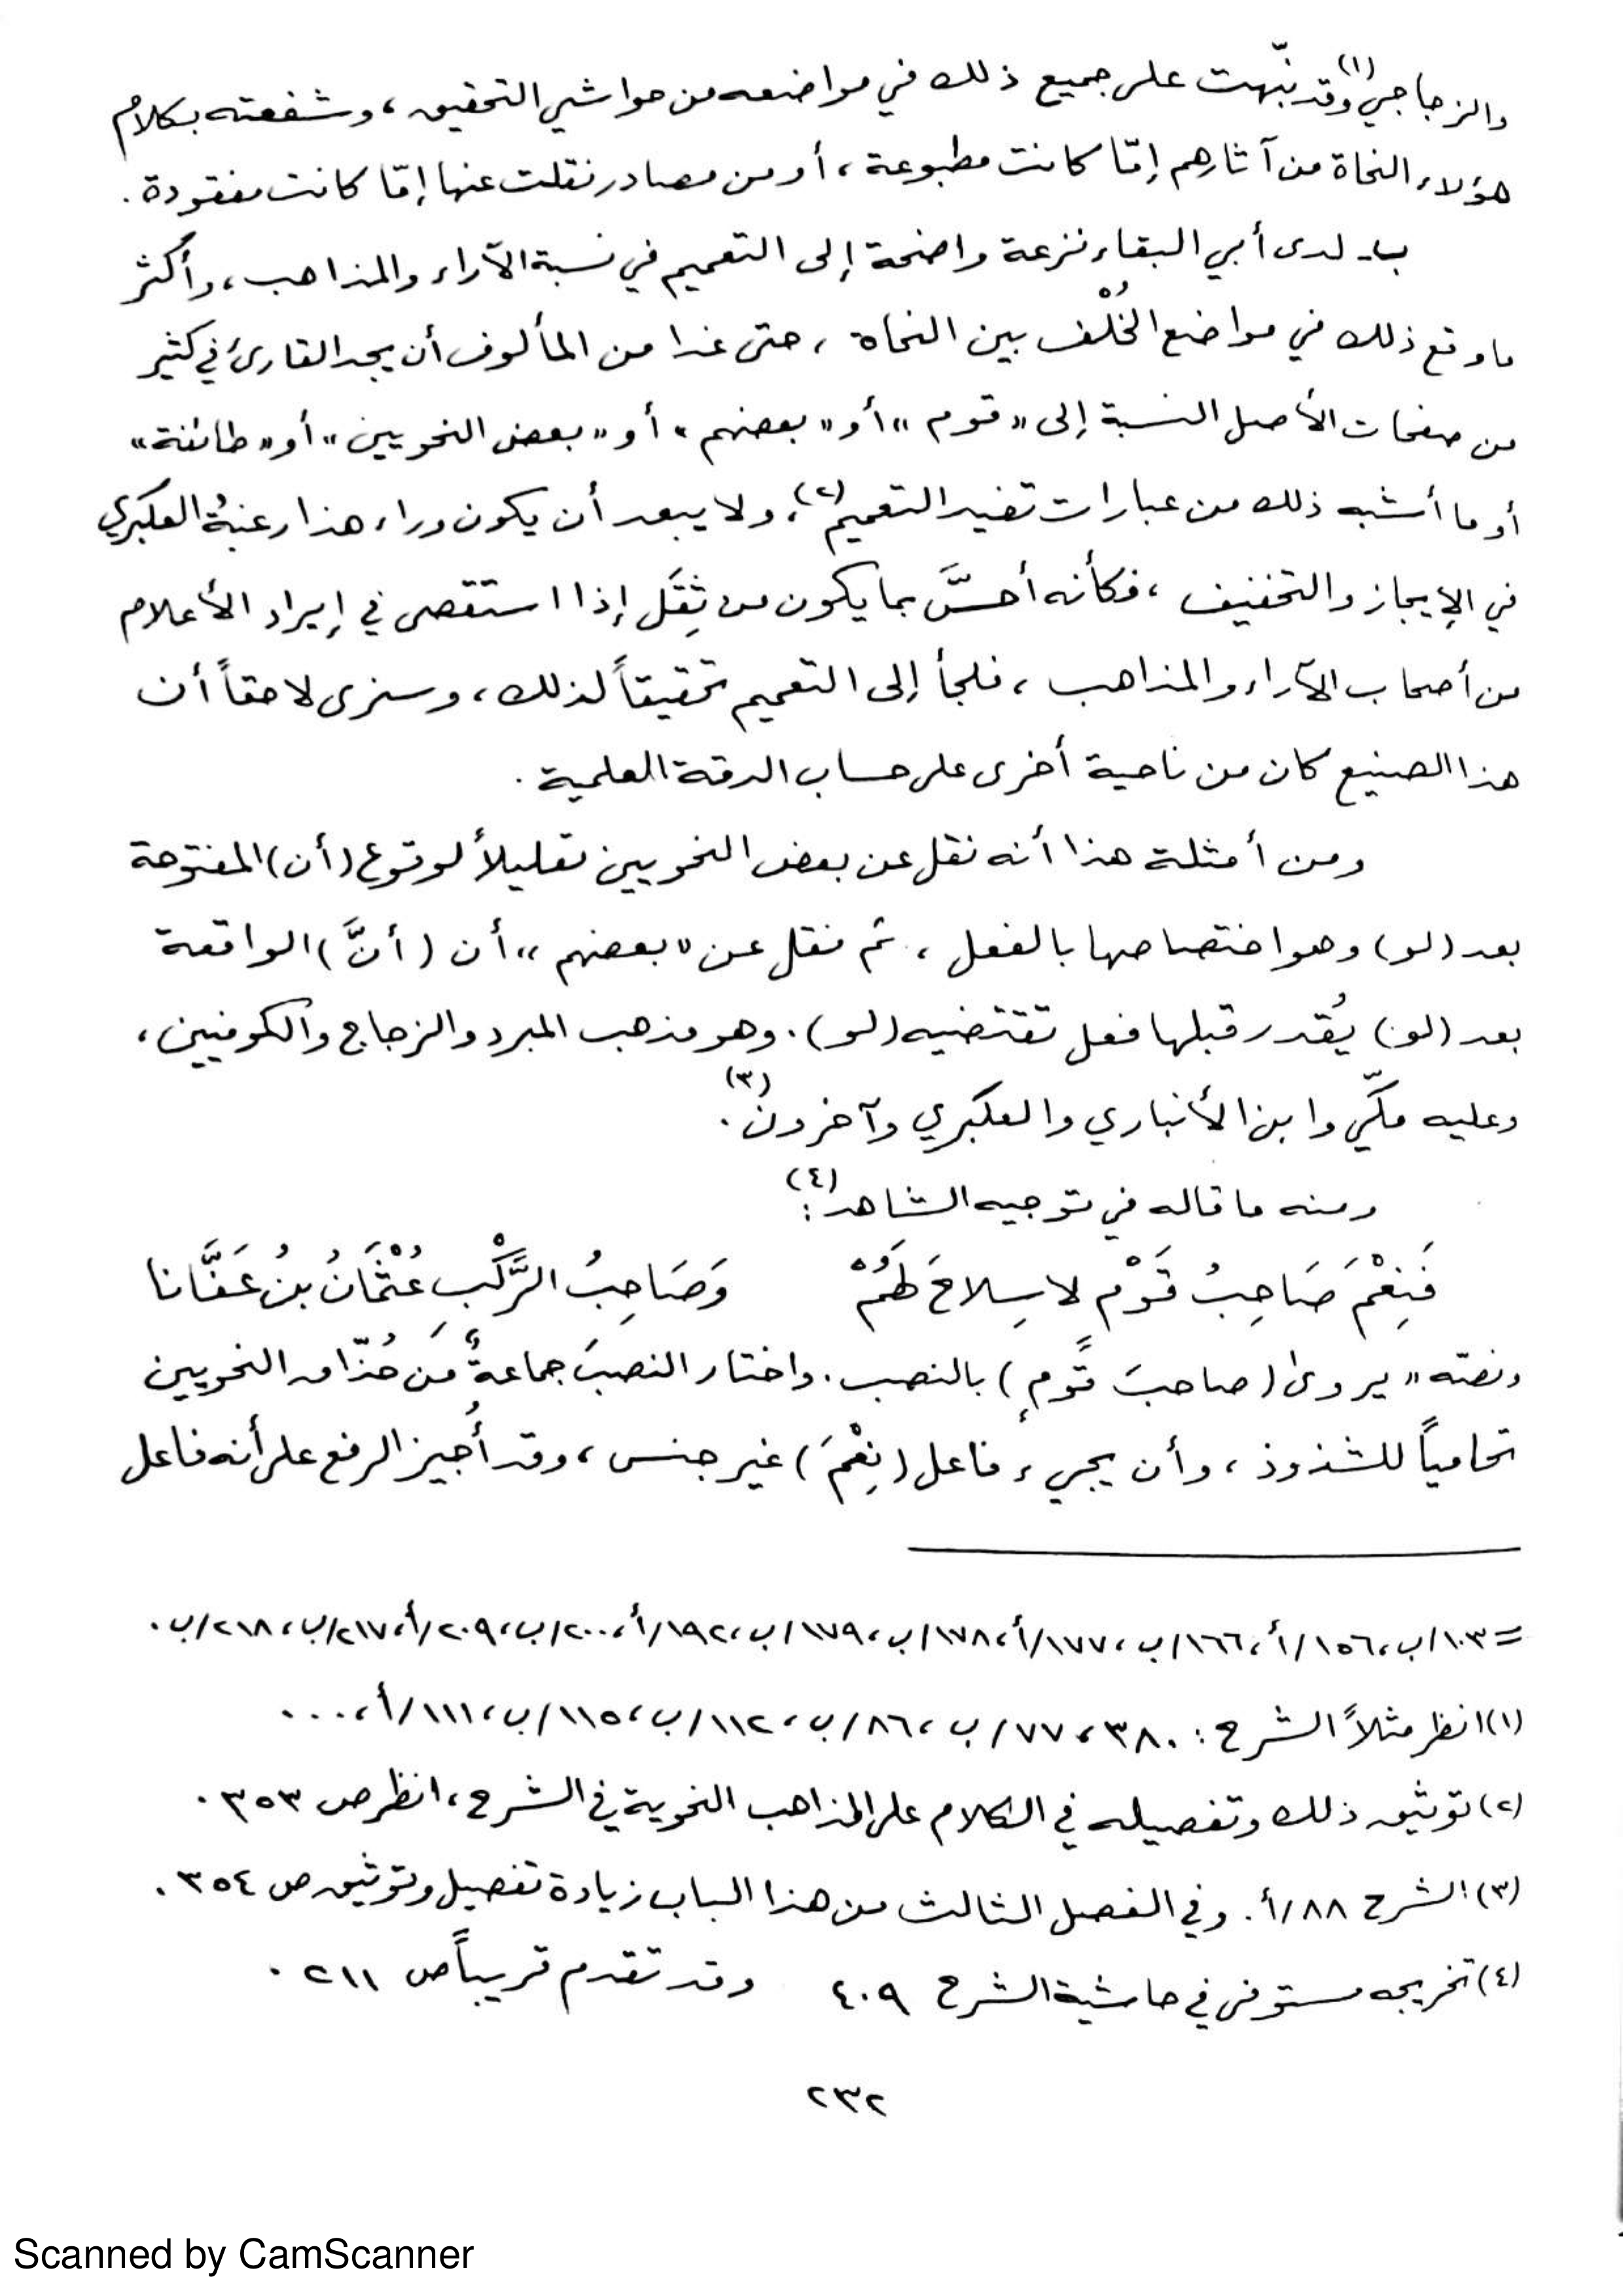 والزجاجي(١) وقد نبّهت على جميع ذلك في مواضعه من حواشي التحقيق، وشفعته بكلام
هؤلاء النحاة من آثارهم إمّا كانت مطبوعة، أو من مصادر نقلت عنها إمّا كانت مفقودة.
ب- لدى أبي البقاء نزعة واضحة إلى التعميم في نسبة الآراء والمذاهب، وأكثر
ما وقع ذلك في مواضع الخُلْف بين النحاة، حتى غدا من المألوف أن يجد القارئ في كثير
من صفحات الأصل النسبة إلى «قوم» أو «بعضهم» أو «بعض النحويين» أو «طائفة»
أو ما أشبه ذلك من عبارات تفيد التعميم(٢)، ولا يبعد أن يكون وراء هذا رغبةُ العكبري
في الإيجاز والتخفيف، فكأنه أحسَّ بما يكون من ثِقَل إذا استقصى في إيراد الأعلام
من أصحاب الآراء والمذاهب، فلجأ إلى التعميم تحقيقاً لذلك، وسنرى لاحقاً أن
هذا الصنيع كان من ناحية أخرى على حساب الدقة العلمية.
ومن أمثلة هذا أنه نقل عن بعض النحويين تعليلاً لوقوع (أن) المفتوحة
بعد (لو) وهو اختصاصها بالفعل، ثم نقل عن «بعضهم» أن (أنَّ) الواقعة
بعد (لو) يُقدر قبلها فعل تقتضيه (لو). وهو مذهب المبرد والزجاج والكوفيين،
وعليه مكّي وابن الأنباري والعكبري وآخرون(٣).
ومنه ما قاله في توجيه الشاهد(٤):
فَنِعْمَ صَاحِبُ قَوْمٍ لا سِلاحَ لَهُمُ وَصَاحِبُ الرَّكْبِ عُثْمَانُ بنُ عَفَّانا
ونصّه «يروى (صاحبَ قَومٍ) بالنصب. واختار النصبَ جماعةٌ مِن حُذّاق النحويين
تحامياً للشذوذ، وأن يجيء فاعل (نِعْمَ) غير جنس، وقد أُجيز الرفع على أنه فاعل
= ١٠٣/ب، ١٥٦/أ، ١٦٦/ب، ١٧٧/أ، ١٧٨/ب، ١٧٩/ب، ١٩٢/أ، ٢٠٠/ب، ٢٠٩/أ، ٢١٧/ب، ٢١٨/ب.
(١) انظر مثلاً الشرح: ٣٨٠، ٧٧/ب، ٨٦/ب، ١١٢/ب، ١١٥/ب، ١١١/أ، ...
(٢) توثيق ذلك وتفصيله في الكلام على المذاهب النحوية في الشرح، انظر ص ٣٥٣.
(٣) الشرح ٨٨/أ. وفي الفصل الثالث من هذا الباب زيادة تفصيل وتوثيق ص ٣٥٤.
(٤) تخريجه مستوفى في حاشية الشرح ٤٠٩ وقد تقدم قريباً ص ٢١١.
٢٣٢
Scanned by CamScanner